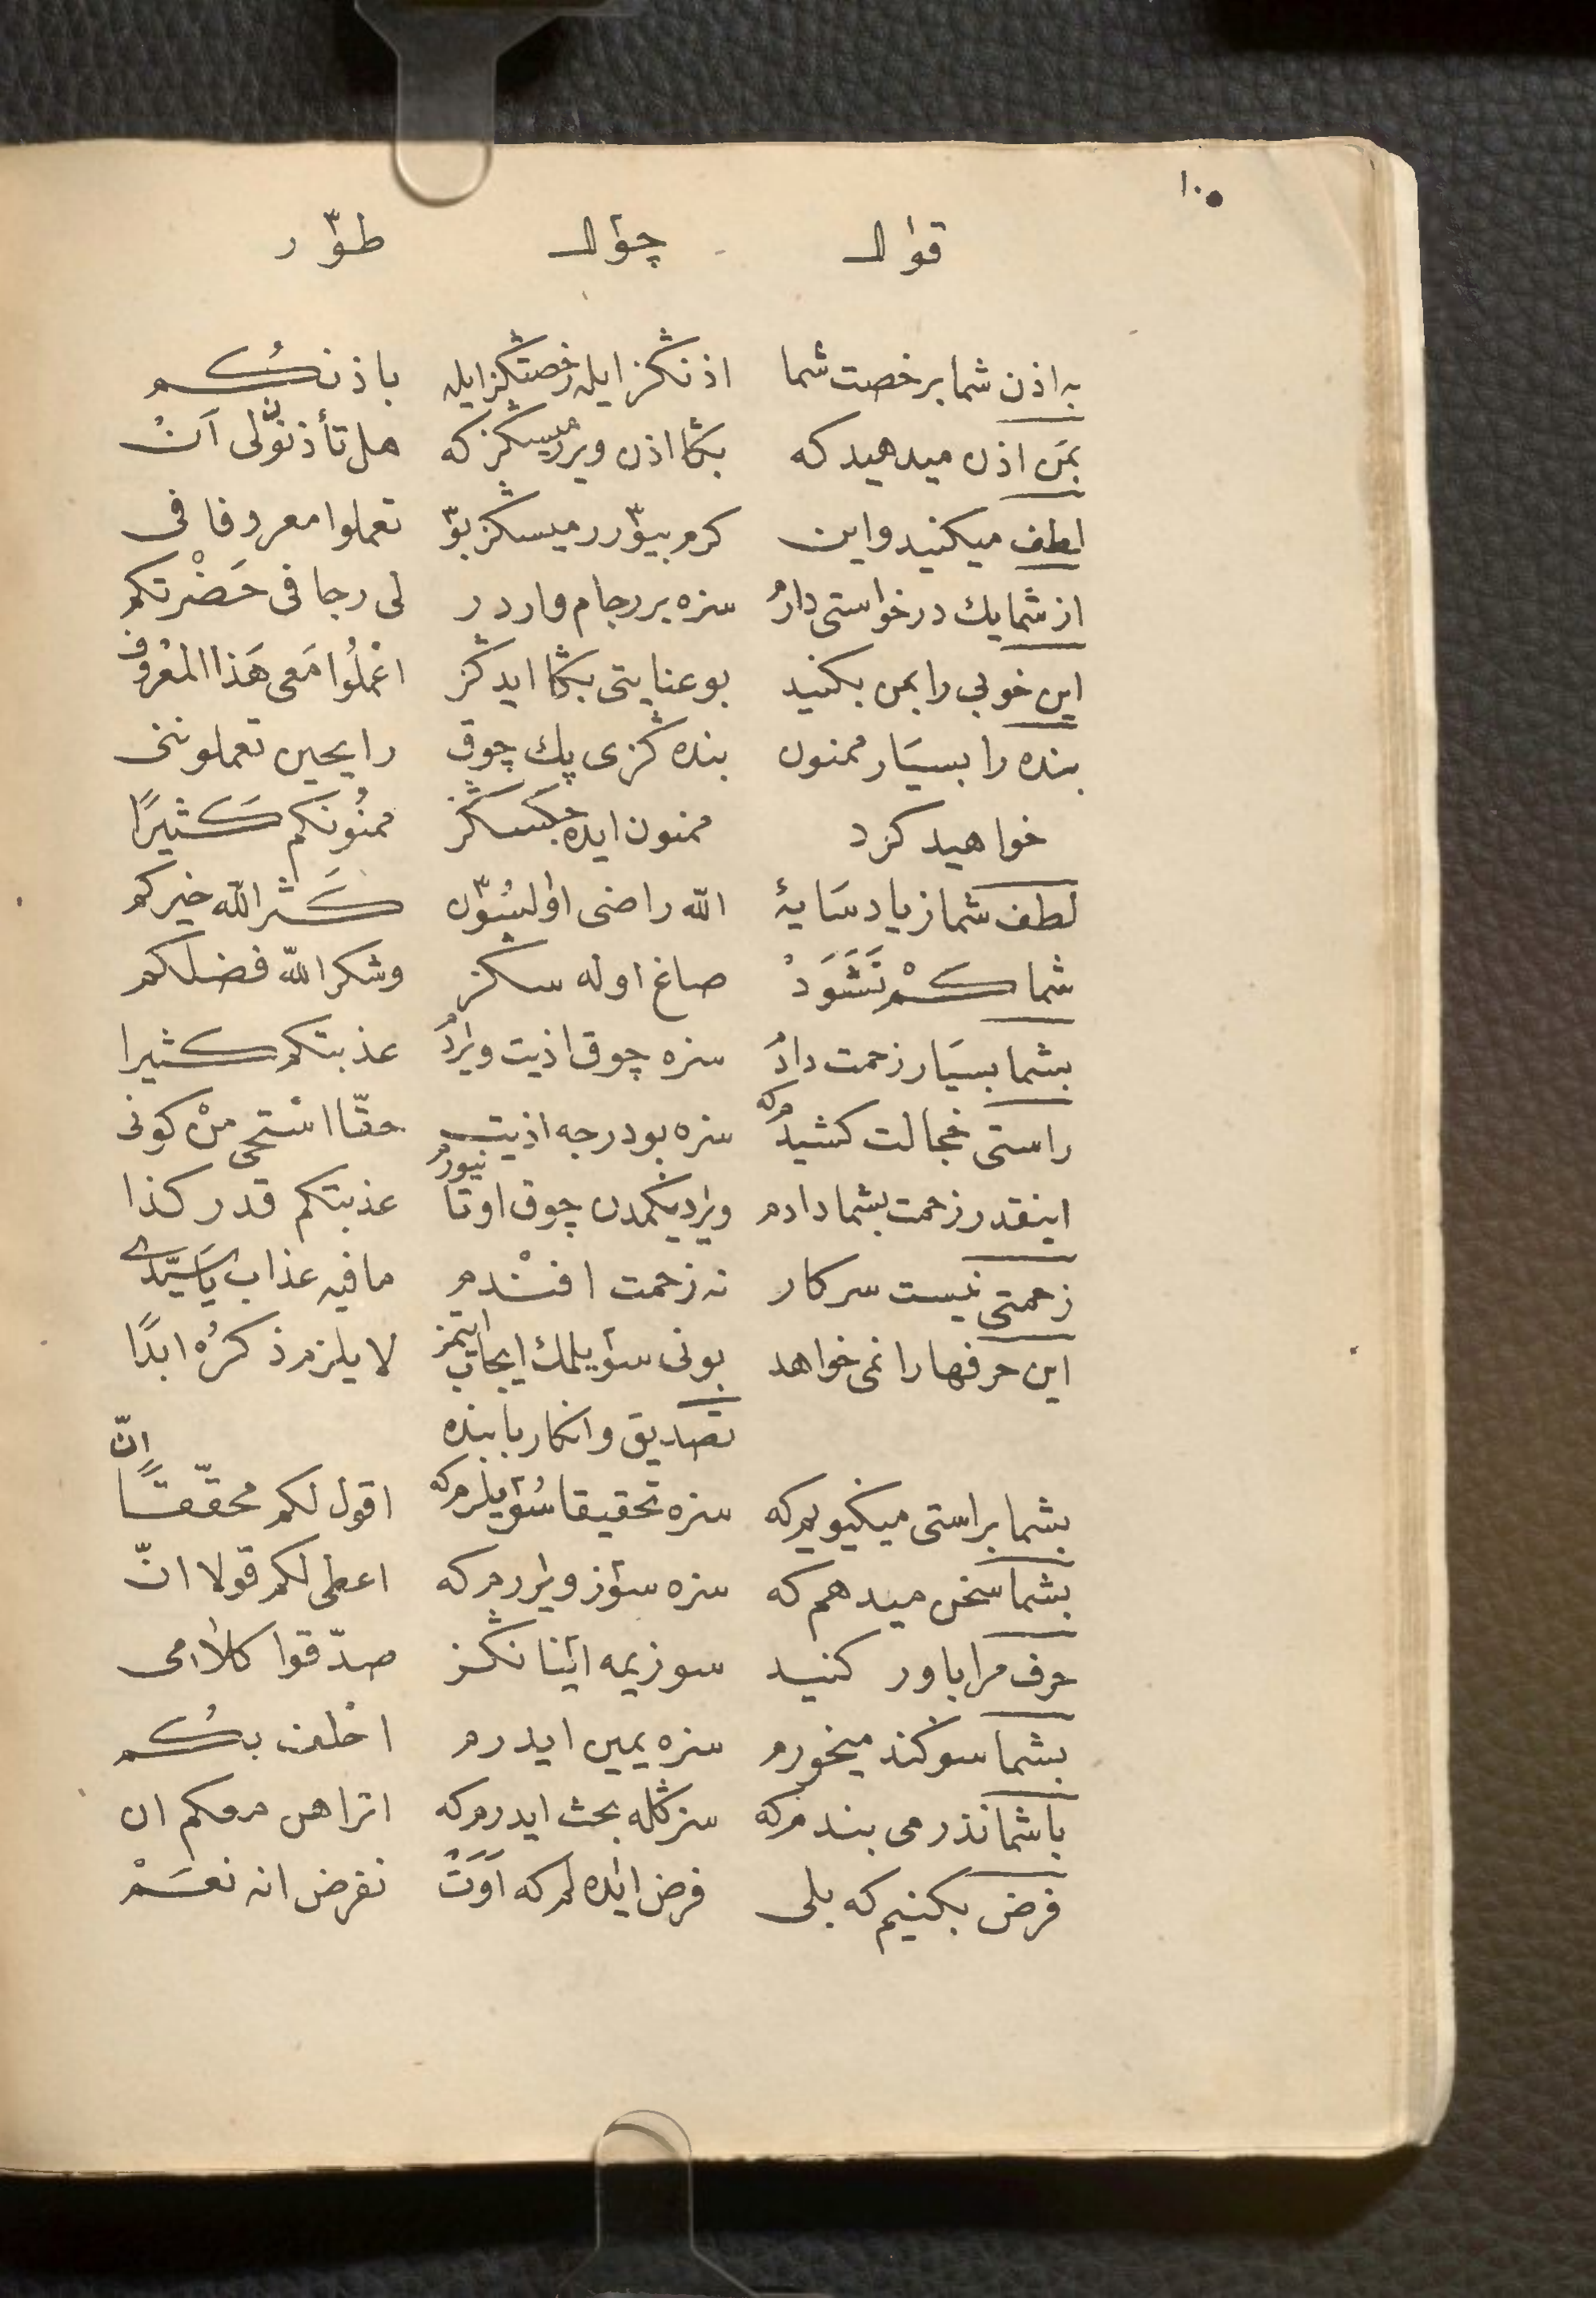 ۱۰۰
قوال چؤال طوّر
به اذن شما برخصت شما اذنڭز ایله رخصتڭز ایله باذنكُم
بمَن اذن میدهید که بڭا اذن ویررمیسڭز که هل تأذنوّن لی اَنْ
لطف میکنید واین کرم بیوّررمیسڭز بوّ تعملوا معروفا فی
از شما یك درخواستی دارم سزه بر رجام واردر لی رجا فی حَضْرتکم
این خوبی را بمن بکنید بو عنایتی بڭا ایدڭز اعْملُوا مَعی هَذا المعْروف
بنده را بسیَار ممنون بنده ڭزی پك چوق رایحین تعملوننی
خواهید کرد ممنون ایده جکسڭز ممنُونکم کَثیرًا
لطف شما زیاد سَایۀ الله راضی اوٰلسُوّن کَثر الله خیرکم
شما کَمْ نَشَوَدْ صاغ اوله سڭز وشکر الله فضلکم
بشما بسیَار زحمت دادم سزه چوق اذیت ویٰردم عذبتکم کثیرا
راستی خجالت کشیدم که سزه بو درجه اذیت حقّا استحی منْ کونی
اینقدر زحمت بشما دادم ویٰردیکمدن چوق اوتانیورم عذبتکم قدر کذا
زحمتی نیست سرکار نه زحمت افنْدم ما فیه عذاب یَاسَیّدی
این حرفها را نمی خواهد بونی سؤیلمك ایجاب ایتمز لا یلزم ذکرُه ابدًا
تصدیق وانکار با بنده
بشما براستی میکیویم که سزه تحقیقا سُؤیلرم که اقول لکم محقّقًا انّ
بشما سخن میدهم که سزه سؤز ویٰررم که اعطی لکم قولا انّ
حرف مرا باور کنید سوزیمه اینانڭز صدّقوا کلامی
بشما سوکند میخورم سزه یمین ایدرم احْلف بکُم
با شما نذر می بندم که سزڭله بحث ایدرم که اتراهن معکم ان
فرض بکنیم که بلی فرض ایٰده لم که اَوَتْ نفرض انه نعَمْ